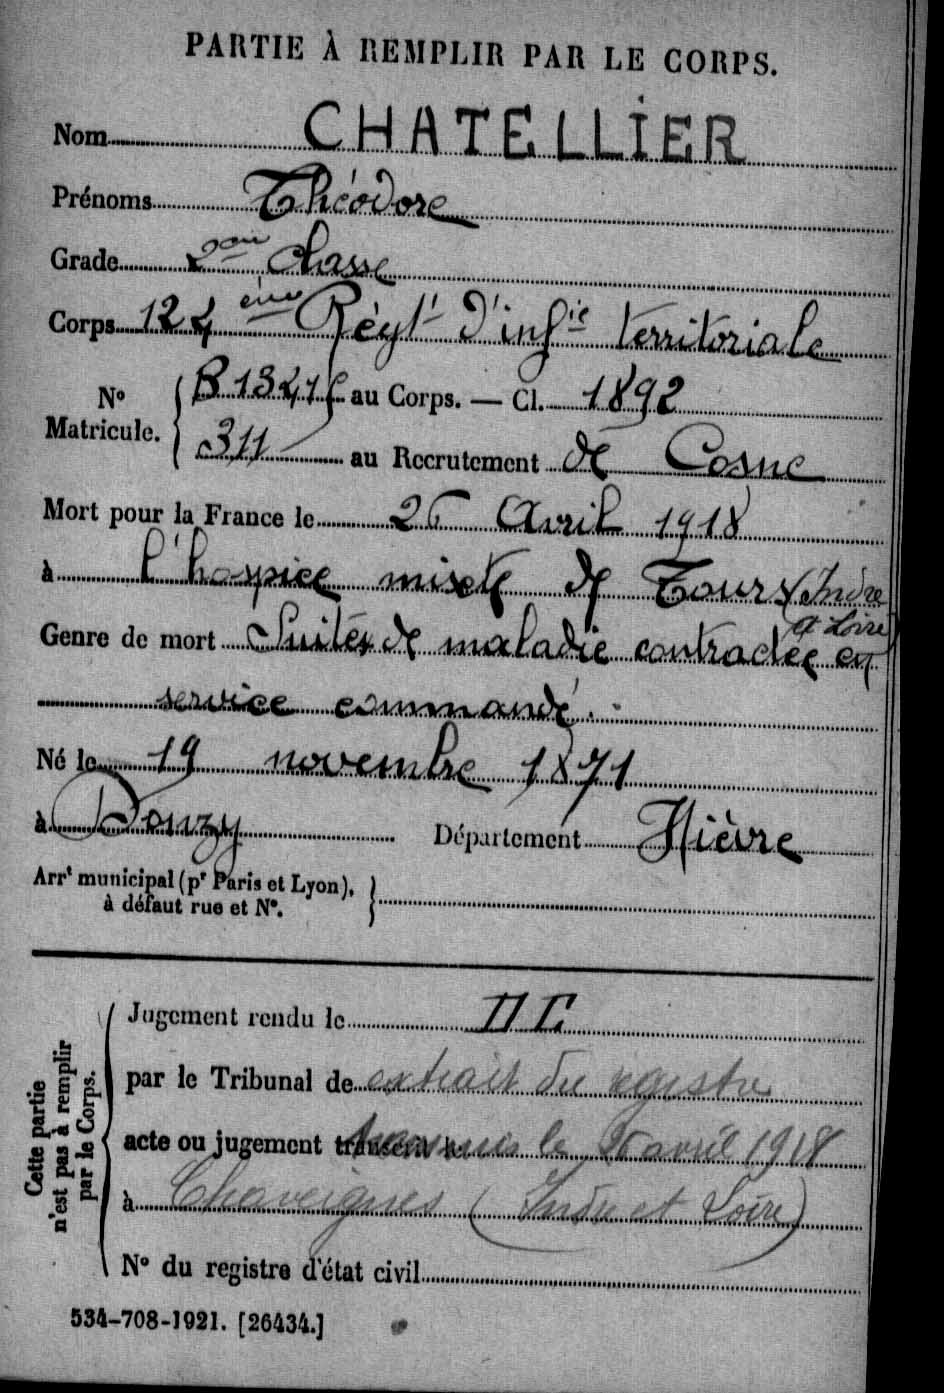 PARTIE À REMPLIR PAR LE CORPS.
Nom CHATELLIER
Prénoms Théodore
Grade 2ème classe
Corps 124ème Régt d'infie territoriale
No Matricule. B 1321 au Corps. — Cl. 1892
311 au Recrutement de Cosne
Mort pour la France le 26 Avril 1918
à l'hospice mixte de Tours (Indre et Loire)
Genre de mort Suites de maladie contractée en
service commandé.
Né le 19 novembre 1871
à Donzy Département Nièvre
Arrt municipal (pr Paris et Lyon),
à défaut rue et No.
Cette partie
n'est pas à remplir
par le Corps.
Jugement rendu le
par le Tribunal de extrait du registre
acte ou jugement transcrit le transmis le avril 1918
à Chaveignes (Indre et Loire)
No du registre d'état civil
534-708-1921. [26434.]